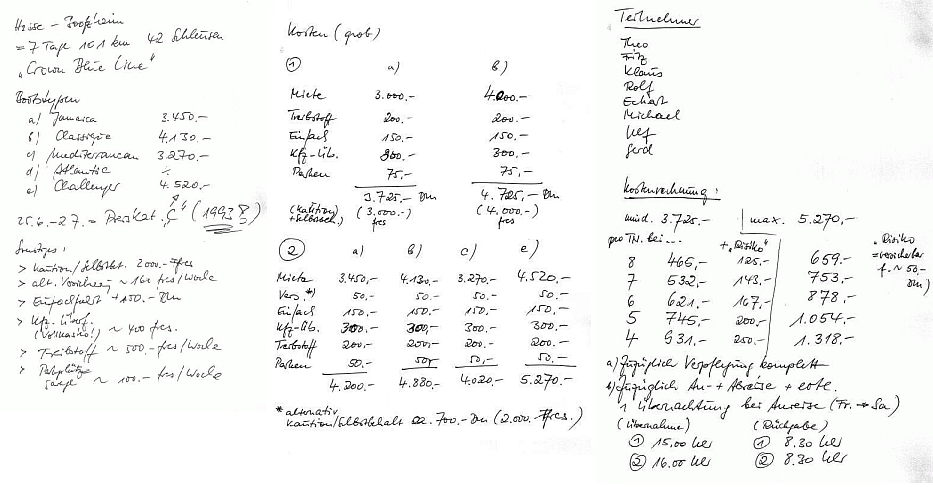 = 7 Tage 161 km 42 Schleusen
"Crown Blue Line"
Bootstypen
a) Jamaica 3.450,-
b) Classique 4.130,-
c) Mediterranean 3.270,-
d) Atlantic ÷
e) Challenger 4.520,-
25.6. - 2.7. =
Sonstiges:
> Kaution/Selbstbeh. 2000.- frcs
> alt. Versicherg ~ 160 frcs/Woche
> Einfachfahrt +150.- DM
> Kfz-Überf.
(Vollkasko!) ~ 400 frcs.
> Treibstoff ~ 500.- frcs/Woche
> ~ 100.- frcs/Woche
Kosten (grob)
① a) b)
Miete 3.000.- 4.200.-
Treibstoff 200.- 200.-
Einfach 150.- 150.-
Kfz-Üb. 300.- 300.-
Parken 75,- 75,-
3.725.- DM 4.725,- DM
(Kaution) (3.000.-) (4.000.-)
frcs frcs
② a) b) c) e)
Miete 3.450,- 4.130.- 3.270.- 4.520.-
Vers.*) 50,- 50.- 50.- 50.-
Einfach 150,- 150.- 150.- 150.-
Kfz-Üb. 300,- 300,- 300.- 300.-
Treibstoff 200.- 200.- 200.- 200.-
Parken 50.- 50,- 50,- 50.-
4.200.- 4.880.- 4.020.- 5.270.-
* alternativ
Kaution/Selbstbehalt ca. 700.- DM (2.000.- frcs.)
Teilnehmer
Theo
Fritz
Klaus
Rolf
Eckart
Michael
Ulf
Gerd
Kostenrechnung:
mind. 3.725.- max. 5.270,-
pro TN. bei... + "Risiko"
8 465,- 125.- 659.-
7 532,- 143.- 753.-
6 621.- 167,- 878.-
5 745,- 200.- 1.054.-
4 931.- 250.- 1.318.-
"Risiko
=versicherbar
f. ~ 50,-
DM)
a) zuzüglich Verpflegung komplett
b) zuzüglich An- + Abreise + evtl.
1 Übernachtung bei Anreise (Fr. → Sa)
(Übernahme) (Rückgabe)
① 15.00 Uhr ① 8.30 Uhr
② 16.00 Uhr ② 8.30 Uhr